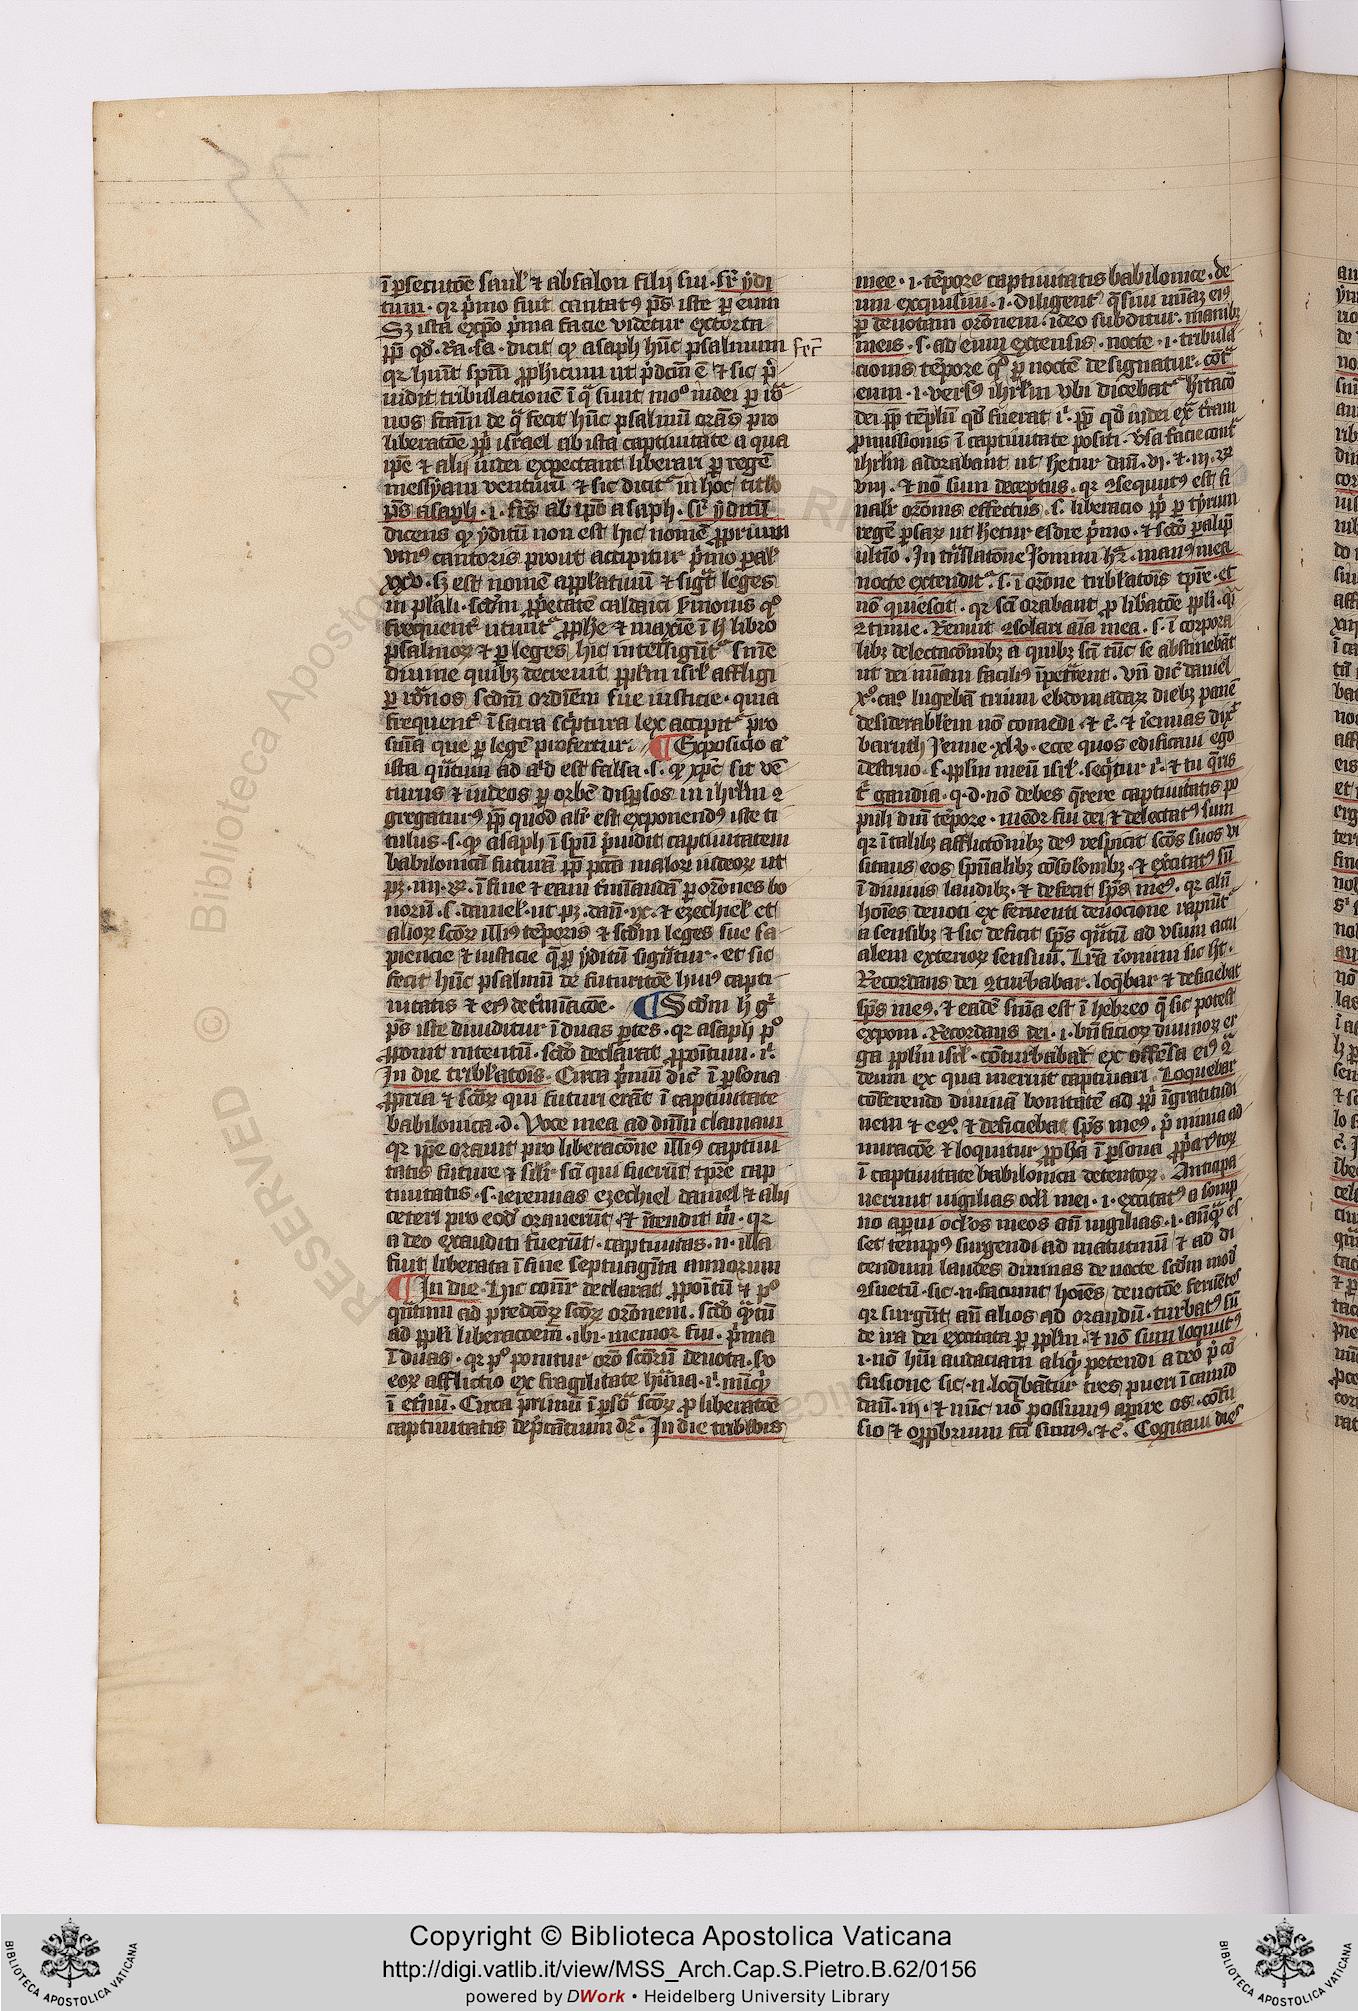 ī p̱secutōe saul' ⁊ absalon filij sui . sr̄ ydi
tum . qr p̄mo fuit cantatꝰ p̄s iste p̱ eum
Sꝫ ista expō p̄ma facie videtur extorta
pp̄ qd̓ . Ra . sa . dicit ꝙ asaph hūc psalmum
qr huit sp̄m ꝓphicum ut p̄dcm̄ ē ⁊ sic p̄
uidit tribulationē ī q̄ sunt mōᵒ iudei p̱
nos de q̄ fecit hūc psalmū orās pro
liberatōe ppl̓i israel ab ista captiuitate a qua
ip̄e ⁊ alij iudei expectant liberari p̱ regē
messyam venturū ⁊ sic dicit᷑ in hoc titlo
p̄s asaph . i . fcs̄ ab ip̄o asaph . sr̄ yditū
dicens ꝙ yditū non est hic nomē ꝓprium
vniꝰ cantoris prout accipitur p̄mo pal̓
xxv . sꝫ est nomē appl̓atiuū ⁊ sigt̄ leges
in pl̓ali . scdm̄ ꝓp̄etatē caldaici s̓monis qͦ
frequent᷑ utunt᷑ ꝓphe ⁊ maxīe ī h̓ libro
psalmoꝝ ⁊ p̱ leges hic intelligūt᷑ snīe
diuine quibꝫ decreuit ppl̓m isrl̓ affligi
p̱ scdm̄ ordīem sue iusticie . quia
frequent᷑ ī sacra sc̓ptura lex accipit᷑ pro
snīa que p̱ legē profertur . ¶ Exposicio aᵗ
ista qn̄tum ad aᵈ est falsa . s . ꝙ xp̄c sit vē
turus ⁊ iudeos p̱ orbē disp̱sos in ihrl̓m ꝯ
gregaturꝰ pp̄ quod alr̓ est exponendꝰ iste ti
tulus . s . ꝙ asaph ī sp̄u p̄uidit captiuitatem
babilonicā futurā pp̄ pcc̄a maloꝝ iudeoꝝ ut
pꝫ . iiii . Rꝝ . ī fine ⁊ eam t̓mīandā p̱ orōnes bo
norū . s . daniel̓ . ut pꝫ . dan̄ . ix . ⁊ ezechiel̓ et
alioꝝ scōꝝ illiꝰ temporis ⁊ scdm̄ leges sue sa
piencie ⁊ iusticie q̄ p̱ yditū sigt̄ur . et sic
fecit hūc psalmū de futuritōe huiꝰ capti
uitatis ⁊ eiꝰ det̓mīacōe . ¶ Scdm̄ h̓ gͥ
p̄s iste diuiditur ī duas p̱tes . qr asaph pͦ
ꝓponit intentū . scd̓o declarat ꝓpoītum . iᵗ .
In die tribl̓atois . Circa p̄mū dic̄ ī p̱sona
ꝓpria ⁊ scōꝝ qui futuri erāt ī captiuitate
babilonica . d . Voce mea ad dn̄m clamaui
qr ip̄e orauit pro liberacōne illiꝰ captiui
tatis future ⁊ sil̓r sc̄i qui fuerūt tpr̄e cap
tiuitatis . s . ieremias ezechiel daniel ⁊ alij
ceteri pro eod̓ orauerūt . ⁊ ītendit m̓ . qr
a deo exauditi fuerūt . captiuitas . n . illa
fuit liberata ī fine septuagīta annorum
¶ In die . Hic conr̄ declarat ꝓpoītū ⁊ pͦ
qn̄tum ad predcōꝝ scōꝝ orōnem . scd̓o qn̄tū
ad ppl̓i liberacōem̄ . ibi . memor fui . p̄ma
ī duas . qr pͦ ponitur orō scōrū deuota . sͦo
eoꝝ afflictio ex fragilitate hūana . iᵗ . nūqͥd
ī et̓nū . Circa primū ī p̱soᵃ scōꝝ ꝓ liberatōe
captiuitatis dep̄cātium dr̄ . In die tribl̓ois
mee . i . tēpore captiuitatis babilonice . de
um exquisiui . i . diligent᷑ q̄siui eiꝰ
p̱ deuotam orōnem . ideo subditur . manibꝫ
meis . s . ad eum extensis . nocte . i . tribula
cionis tēpore qͦ p̱ noctē designatur . cont̄
eum . i . versꝰ ihrl̓m vbi dicebat᷑ hītacō
dei pp̄ templū qd̓ fuerat iᵗ . pp̄ qd̓ iudei ext̄ t̓ram
ꝓmissionis ī captiuitate positi . v̓sa facie cont̄
ihrl̓m adorabant ut hētur dan̄ . vi . ⁊ . iii . Rꝝ
viii . ⁊ nō sum deceptus . qr ꝯsequutꝰ est fi
nalr̓ orōnis effectus . s . liberacio ppl̓i p̱ tyrum
regē p̱saꝝ ut hētur esdre p̄mo . ⁊ scd̓o paralip̄
ultio . In trāslatōne Jeronimi hr̄ . manꝰ mea
nocte extendit᷑ . s . ī orōne tribl̓atois tpr̄e . et
nō quiescit . qr sc̄i orabant ꝓ lib̓atōe ppl̓i . ꝙ
ꝯtinue . Renuit ꝯsolari aīa mea . s . ī corpora
libꝫ delectacōnibꝫ a quibꝫ sc̄i tūc se abstinebāt
ut dei facilius īpet̓rent . Vn̄ dic̄ daniel
xͦ . caͦ . lugebā trium ebdomadaꝝ diebꝫ panē
desiderabl̓em nō comedi . ⁊ c̄ . ⁊ ieremias dix̓
baruch Jerēie . xlv . ecce quos edificaui ego
destruo . s . ppl̓m meū isrl̓ . seq̄tur iᵗ . ⁊ tu q̄ris
t̓ gaudia . q . d . nō debes q̄rere captiuitatis po
puli dn̄i tēpore . memor fui dei ⁊ delectatꝰ sum
qr ī talibꝫ afflictōnibꝫ deꝰ respicit scōs suos vi
sitans eos sp̄ualibꝫ cōsolōnibꝫ . ⁊ ex̓citatꝰ sū
ī diuinis laudibꝫ . ⁊ defecit sp̄s meꝰ . qr aliq̄n
hoīes deuoti ex feruenti deuocione rapiūt᷑
a sensibꝫ ⁊ sic deficit sp̄s qn̄tū ad vsum actu
alem exterioꝝ sensuū . Lr̄a ieronimi sic ht̄ .
Recordans dei ꝯturbabar . loq̄bar ⁊ deficiebat
sp̄s meꝰ . ⁊ eadē snīa est ī hebreo q̄ sic potest
exponi . Recordans dei . i . bn̄ficioꝝ diuinoꝝ er
ga ppl̓m isrl̓ . cōturbabar ex offensa eiꝰ ꝯt̄
deum ex qua meruit captiuari . Loquebar
cōferendo diuinā bonitatē ad ppl̓i īgratitudi
nem ⁊ eꝯͦ . ⁊ deficiebat sp̄s meꝰ . p̄ nimia ad
miracōe ⁊ loquitur ꝓphā ī p̱sona ꝓp̄a ⁊ ⁊toꝝ
ī captiuitate babilonica detentoꝝ . Anticipa
uerunt uigilias ocl̓i mei . i . excitatꝰ a somp
no aperui ocl̓os meos an̄ uigilias . i . an̄q̄ es
set tempꝰ surgendi ad matutinū ⁊ ad di
cendum laudes diuinas de nocte scdm̄ modū
ꝯsuetū . sic . n . faciunt hoīes deuotōe feruētes
qr surgūt an̄ alios ad orandū . turbatꝰ sū
de ira dei excitata p̱ ppl̓m . ⁊ nō sum loquutꝰ
. i . nō hui audaciam aliqͥd petendi a deo p̄ cō
fusione sic . n . loq̄bātur tres pueri ī camīo
dan̄ . iii . ⁊ nūc nō possumꝰ aperire os . cōfu
sio ⁊ opprobrium fc̄i sumꝰ . ⁊ c̄ . Cogitaui dies
RESERVED © Biblioteca Apostolica Vaticana
Copyright © Biblioteca Apostolica Vaticana
http://digi.vatlib.it/view/MSS_Arch.Cap.S.Pietro.B.62/0156
powered by DWork • Heidelberg University Library
BIBLIOTECA APOSTOLICA VATICANA
BIBLIOTECA APOSTOLICA VATICANA